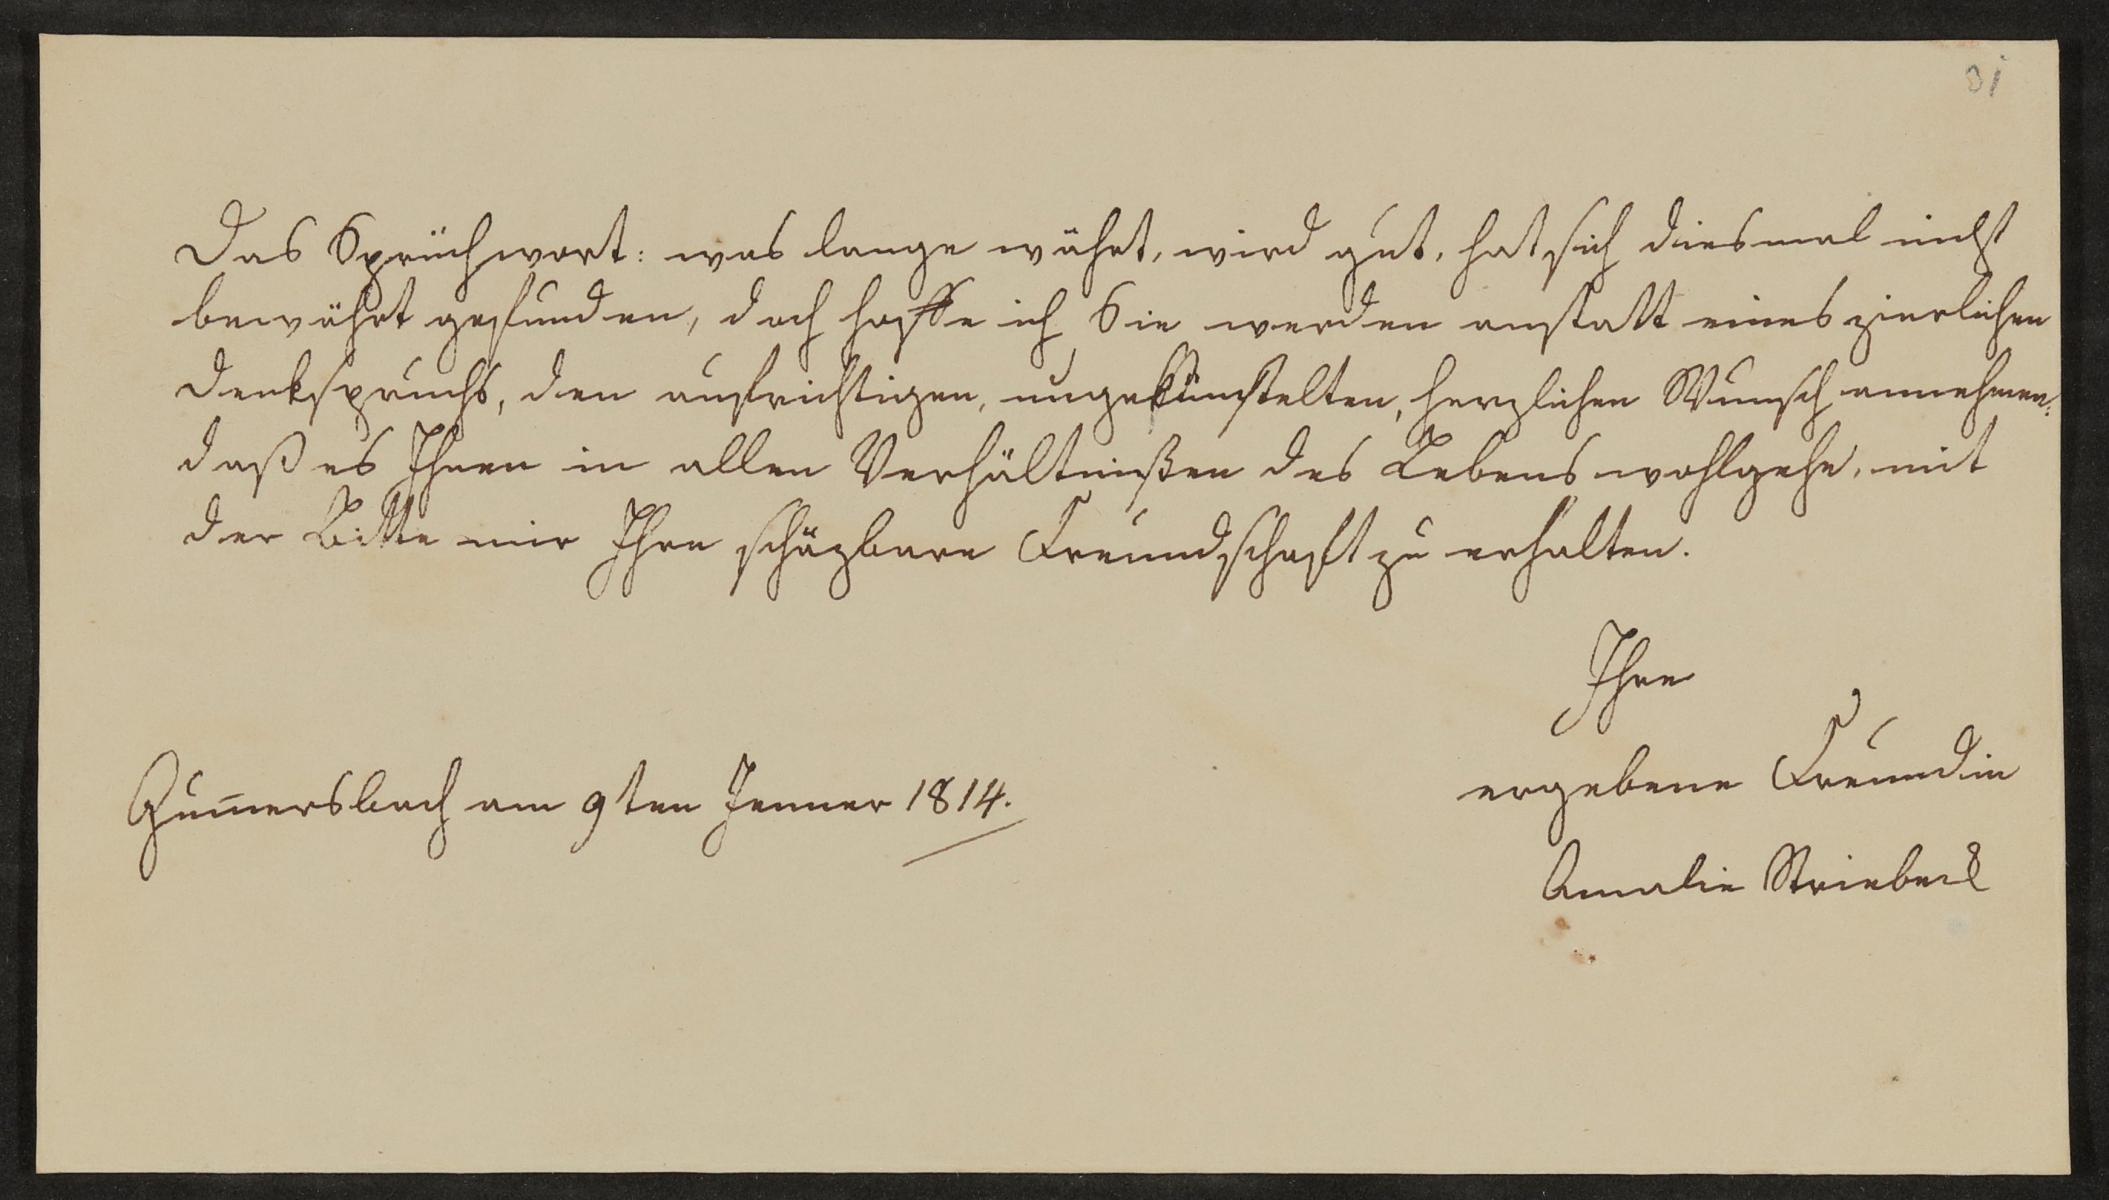 31
Das Sprüchwort: was lange währt, wird gut, hat sich diesmal nicht
bewährt gefunden, doch hoffe ich Sie werden anstatt eines zierlichen
Denkspruchs, den aufrichtigen, ungekünstelten, herzlichen Wunsch annehmen:
daß es Ihnen in allen Verhältnißen des Lebens wohlgehe, mit
der Bitte mir Ihre schäzbare Freundschaft zu erhalten.
Ihre
ergebene Freundin
Amalie Striebeck
Gum̅ersbach am 9ten Jenner 1814.